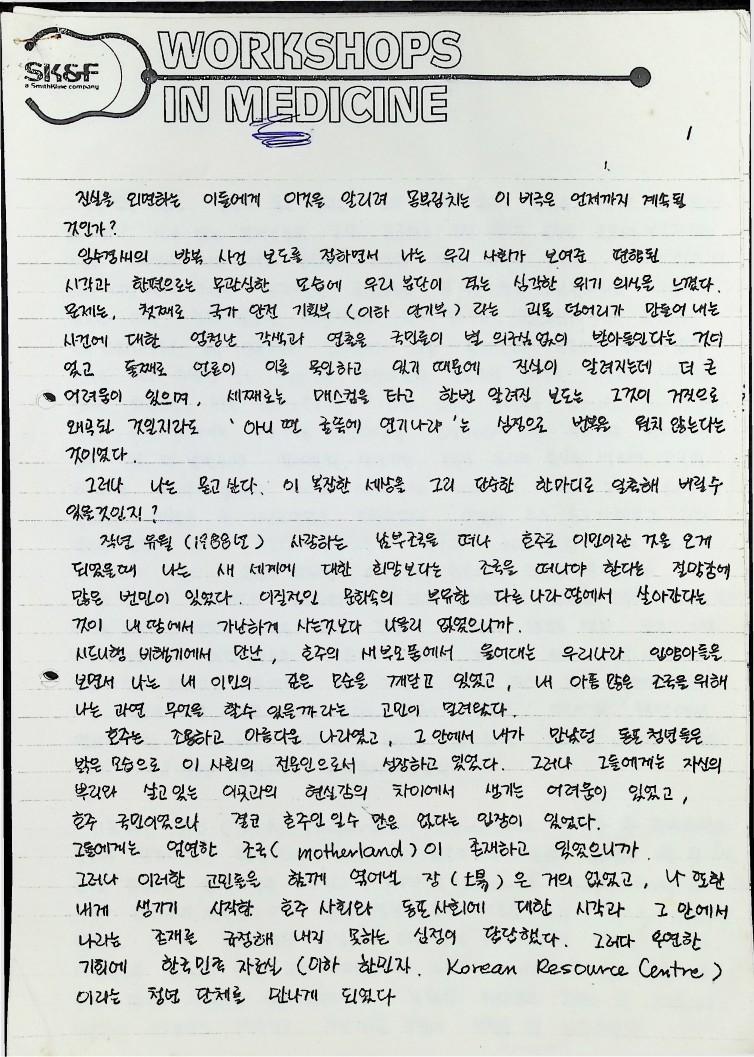 SK&F
a SmithKline company
WORKSHOPS
IN MEDICINE
1
1.
진실을 외면하는 이들에게 이것을 알리려 몸부림치는 이 비극은 언제까지 계속될
것인가?
임수경씨의 방북 사건 보도를 접하면서 나는 우리 사회가 보여준 편향된
시각과 한편으로는 무관심한 모습에 우리 분단이 겪는 심각한 위기 의식을 느꼈다.
문제는, 첫째로 국가 안전 기획부 (이하 안기부) 라는 괴물 덩어리가 만들어 내는
사건에 대한 엄청난 각색과 연출을 국민들이 별 의구심없이 받아들인다는 것이
었고 둘째로 언론이 이를 묵인하고 있기 때문에 진실이 알려지는데 더 큰
어려움이 있으며, 세째로는 매스컴을 타고 한번 알려진 보도는 그것이 거짓으로
왜곡된 것일지라도 '아니 땐 굴뚝에 연기나랴'는 심정으로 번복을 원치 않는다는
것이었다.
그러나 나는 묻고 싶다. 이 복잡한 세상을 그리 단순한 한마디로 일축해 버릴수
있을것인지?
작년 유월 (1988년) 사랑하는 남부조국을 떠나 호주로 이민이란 것을 오게
되었을때 나는 새 세계에 대한 희망보다는 조국을 떠나야 한다는 절망감에
많은 번민이 있었다. 이질적인 문화속의 부유한 다른 나라 땅에서 살아간다는
것이 내 땅에서 가난하게 사는것보다 나을리 없었으니까.
시드니행 비행기에서 만난, 호주의 새부모품에서 울어대는 우리나라 입양아들을
보면서 나는 내 이민의 깊은 모순을 깨닫고 있었고, 내 아픔 많은 조국을 위해
나는 과연 무엇을 할수 있을까라는 고민이 밀려왔다.
호주는 조용하고 아름다운 나라였고, 그 안에서 내가 만났던 동포 청년들은
밝은 모습으로 이 사회의 전문인으로서 성장하고 있었다. 그러나 그들에게는 자신의
뿌리와 살고 있는 이곳과의 현실감의 차이에서 생기는 어려움이 있었고,
호주 국민이었으나 결코 호주인일수 만은 없다는 입장이 있었다.
그들에게는 엄연한 조국( motherland )이 존재하고 있었으니까.
그러나 이러한 고민들을 함께 엮어낼 장 (場) 은 거의 없었고, 나 또한
내게 생기기 시작한 호주 사회와 동포 사회에 대한 시각과 그 안에서
나라는 존재를 규정해 내지 못하는 심정이 답답했다. 그러다 우연한
기회에 한국민족 자료실 (이하 한민자. Korean Resource Centre)
이라는 청년 단체를 만나게 되었다